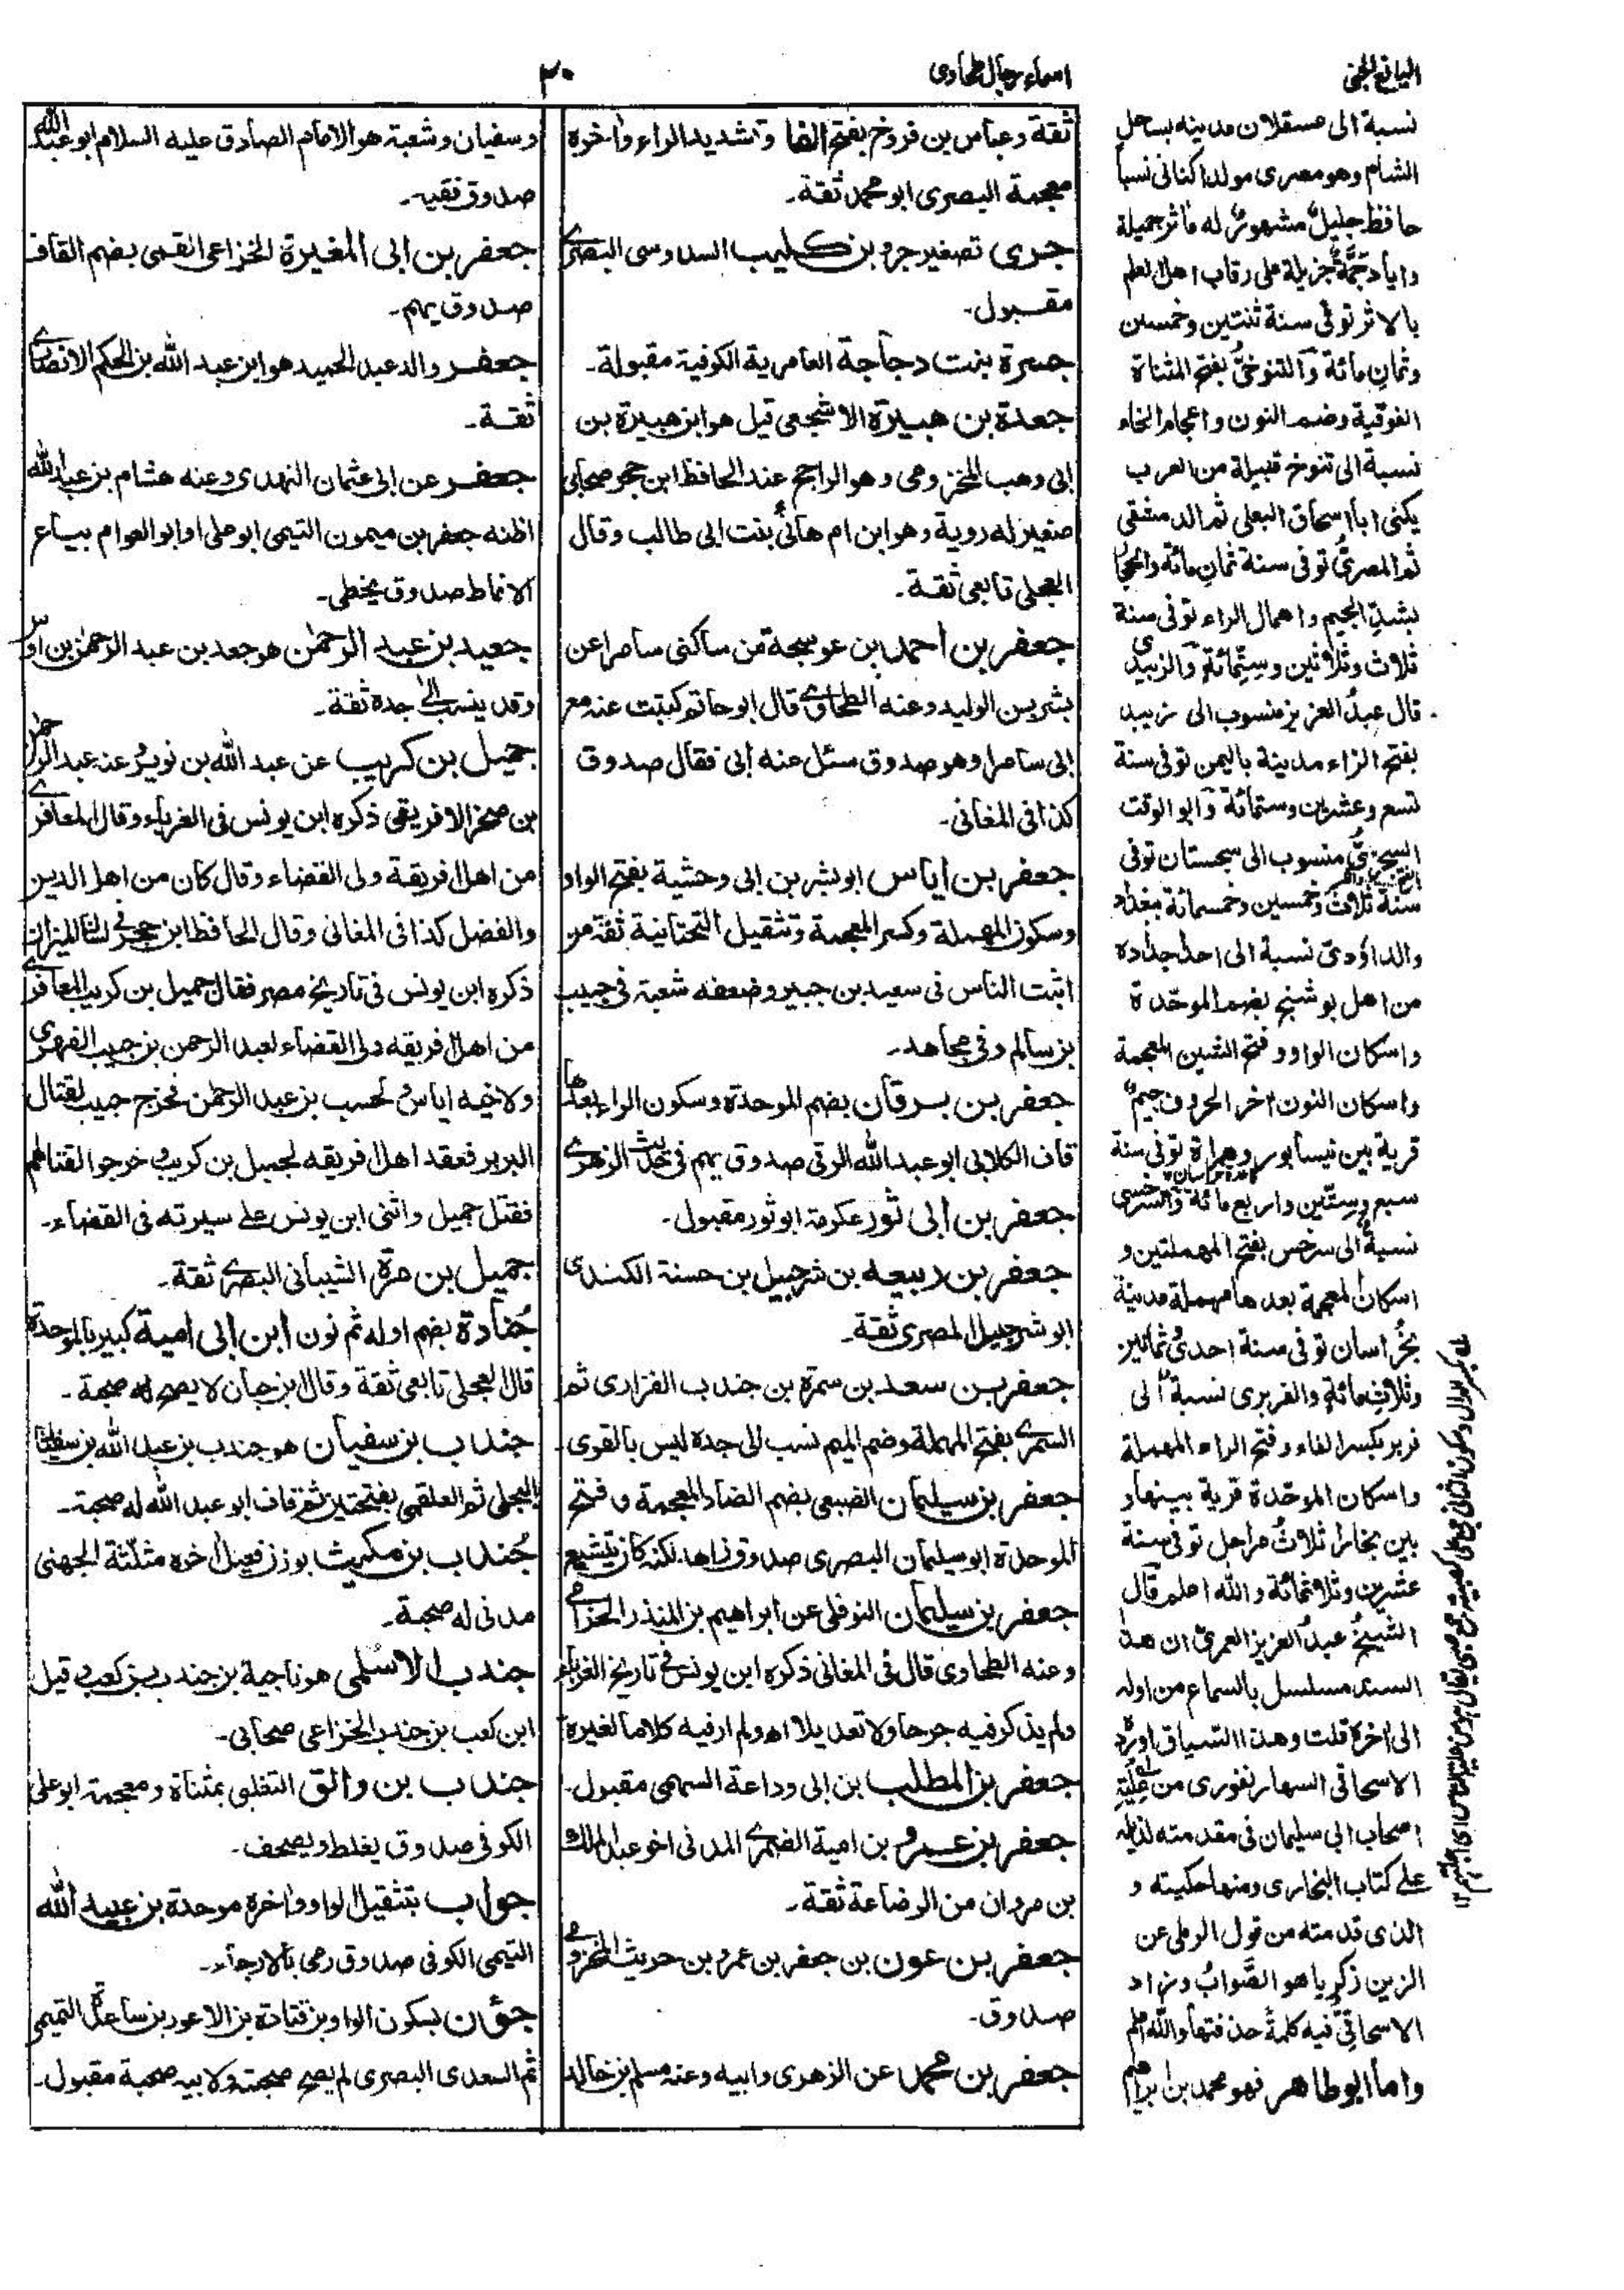 اليانع الجنى
اسماء رجال طحاوى
٣٠
ثقة وعباس بن فروخ بفتح الفا وتشديد الراء واخره
معجمة البصرى ابو محمد ثقة۔
جرى تصغير جرو بن كليب السدوسى البصرى
مقبول۔
جسرة بنت دجاجة العامرية الكوفية مقبولة۔
جعدة بن هبيرة الاشجعى قيل هو ابن هبيرة بن
ابى وهب المخزومى وهو الراجح عند الحافظ ابن حجر صحابى
صغير له روية وهو ابن ام هانئ بنت ابى طالب وقال
العجلى تابعى ثقة۔
جعفر بن احمد بن عوسجة من ساكنى سامرا عن
بشر بن الوليد وعنه الطحاوى قال ابو حاتم كتبت عنه مع
ابى سامرا وهو صدوق سئل عنه ابى فقال صدوق
كذا فى المغانى۔
جعفر بن اياس ابو بشر بن ابى وحشية بفتح الواو
وسكون المهملة وكسر المعجمة وتثقيل التحتانية ثقة من
اثبت الناس فى سعيد بن جبير وضعفه شعبة فى حبيب
بن سالم وفى مجاهد۔
جعفر بن برقان بضم الموحدة وسكون الراء بعدها
قاف الكلابى ابو عبد الله الرقى صدوق يهم فى حديث الزهرى
جعفر بن ابى ثور عكرمة ابو ثور مقبول۔
جعفر بن ربيعه بن شرجبيل بن حسنة الكندى
ابو شرجبيل المصرى ثقة۔
جعفر بن سعد بن سمرة بن جندب الفزارى ثم
السمرى بفتح المهملة وضم الميم نسب الى جده ليس بالقوى
جعفر بن سيلمان الضبعى بضم الضاد المعجمة و فتح
الموحدة ابو سيلمان البصرى صدوق زاهد لكنه كان يتشيع
جعفر بن سيلمان النوفلى عن ابراهيم بن المنذر الحزامى
وعنه الطحاوى قال فى المغانى ذكره ابن يونس فى تاريخ الغرباء
ولم يذكر فيه جرحا ولا تعديلا اه ولم ار فيه كلاما لغيرة
جعفر بن المطلب بن ابى وداعة السهمى مقبول۔
جعفر بن عمرو بن امية الضمرى المدنى اخو عبد الملك
بن مروان من الرضاعة ثقة۔
جعفر بن عون بن جعفر بن عمرو بن حريث المخزومى
صدوق۔
جعفر بن محمد عن الزهرى وابيه وعنه مسلم بن خالد
وسفيان وشعبة هو الامام الصادق عليه السلام ابو عبد الله
صدوق فقيه۔
جعفر بن ابى المغيرة الخزاعى القمى بضم القاف
صدوق يهم۔
جعفر والد عبد الحميد هو ابن عبد الله بن الحكم الانصارى
ثقة۔
جعفر عن ابى عثمان النهدى وعنه هشام بن عبد الله
اظنه جعفر بن ميمون التيمى ابو على او ابو العوام بياع
الانماط صدوق يخطى۔
جعيد بن عبد الرحمٰن هو جعد بن عبد الرحمٰن بن اوس
وقد ينسب الى جدة ثقة۔
جميل بن كريب عن عبد الله بن نويرٍ عنه عبد الرحمٰن
بن صخر الافريقى ذكره ابن يونس فى الغرباء وقال المعافرى
من اهل افريقة ولى القضاء وقال كان من اهل الدين
والفضل كذا فى المغانى وقال الحافظ ابن حجر فى لسان الميزان
ذكره ابن يونس فى تاريخ مصر فقال جميل بن كريب المعافرى
من اهل افريقه ولى القضاء لعبد الرحمن بن حبيب الفهرى
ولاخيه اياس لحسب بن عبد الرحمٰن فخرج حبيب لقتال
البربر فعقد اهل افريقه لجميل بن كريب وخرجوا لقتالهم
فقتل جميل واثنى ابن يونس على سيرته فى القضاء۔
جميل بن مرة الشيبانى البصرى ثقة۔
جُنادة بضم اوله ثم نون ابن ابى امية كبير بالموحدة
قال العجلى تابعى ثقة وقال ابن حبان لا يصح له صحبة۔
جندب بن سفيان هو جندب بن عبد الله بن سفيان
البجلى ثم العلقمى بفتحتين ثم قاف ابو عبد الله له صحبة۔
جُندب بن مكيث بوزن فعيل اخره مثلثة الجهنى
مدنى له صحبة۔
جندب الاسلمى هو ناجية بن جندب بن كعب وقيل
ابن كعب بن جندب الخزاعى صحابى۔
جندب بن والق التغلبى بمثناة ومعجمة ابو على
الكوفى صدوق يغلط ويصحف۔
جواب بتثقيل الواو واخره موحدة بن عبيد الله
التيمى الكوفى صدوق رمى بالارجاء۔
جؤن بسكون الواو بن قتادة بن الاعور بن ساعدة التميمى
ثم السعدى البصرى لم يصح صحبته ولابيه صحبة مقبول۔
نسبة الى عسقلان مدينه بساحل
الشام وهو مصرى مولدا كنانى نسبا
حافظ جليل مشهور له مآثر جميلة
وايادٍ جمّة جزيلة على رقاب اهل العلم
بالاثر توفى سنة ثنتين وخمسين
وثمان مائة والتنوخىّ بفتح المثناة
الفوقية وضم النون واعجام الخاء
نسبة الى تنوخ قبيلة من العرب
يكنى ابا اسحاق البعلى ثم الدمشقى
ثم المصرى توفى سنة ثمان مائة والحجار
بشد الجيم واهمال الراء توفى سنة
ثلاث وثلاثين وستمائة والزبيدى
قال عبد العزيز منسوب الى زبيد
بفتح الزاء مدينة باليمن توفى سنة
تسع وعشرين وستمائة وابو الوقت
السجزىّ منسوب الى سجستان توفى
سنة ثلاث وخمسين وخمسمائة ببغداد
والداؤدى نسبة الى احد اجداده
من اهل بوشنج بضم الموحدة
واسكان الواو و فتح الشين المعجمة
واسكان النون اخر الحروف جيم
قرية بين نيسابور وهراة توفى سنة
سبع وستين واربع مائة والسرخسى
نسبة الى سرخس بفتح المهملتين و
اسكان المعجمة بعدها مهملة مدينة
بخراسان توفى سنة احدى ثمانين
وثلاث مائة والفربرى نسبة الى
فربر بكسر الفاء وفتح الراء المهملة
واسكان الموحدة قرية بينها و
بين بخارا ثلاث مراحل توفى سنة
عشرين وثلاثمائة والله اعلم قال
الشيخ عبد العزيز العمرى ان هذا
السند مسلسل بالسماع من اوله
الى اخره قلت وهذا السياق اورده
الاسحاقى السهارنفورى من عِلّيّةِ
اصحاب ابى سليمان فى مقدمته لذيله
على كتاب البخارى ومنها حكيته و
الذى قدمته من قول الرملى عن
الزين زكريا هو الصَّوابُ وزاد
الاسحاقىّ فيه كلمة حذفتها والله اعلم
واما ابو طاهر فهو محمد بن ابراهيم